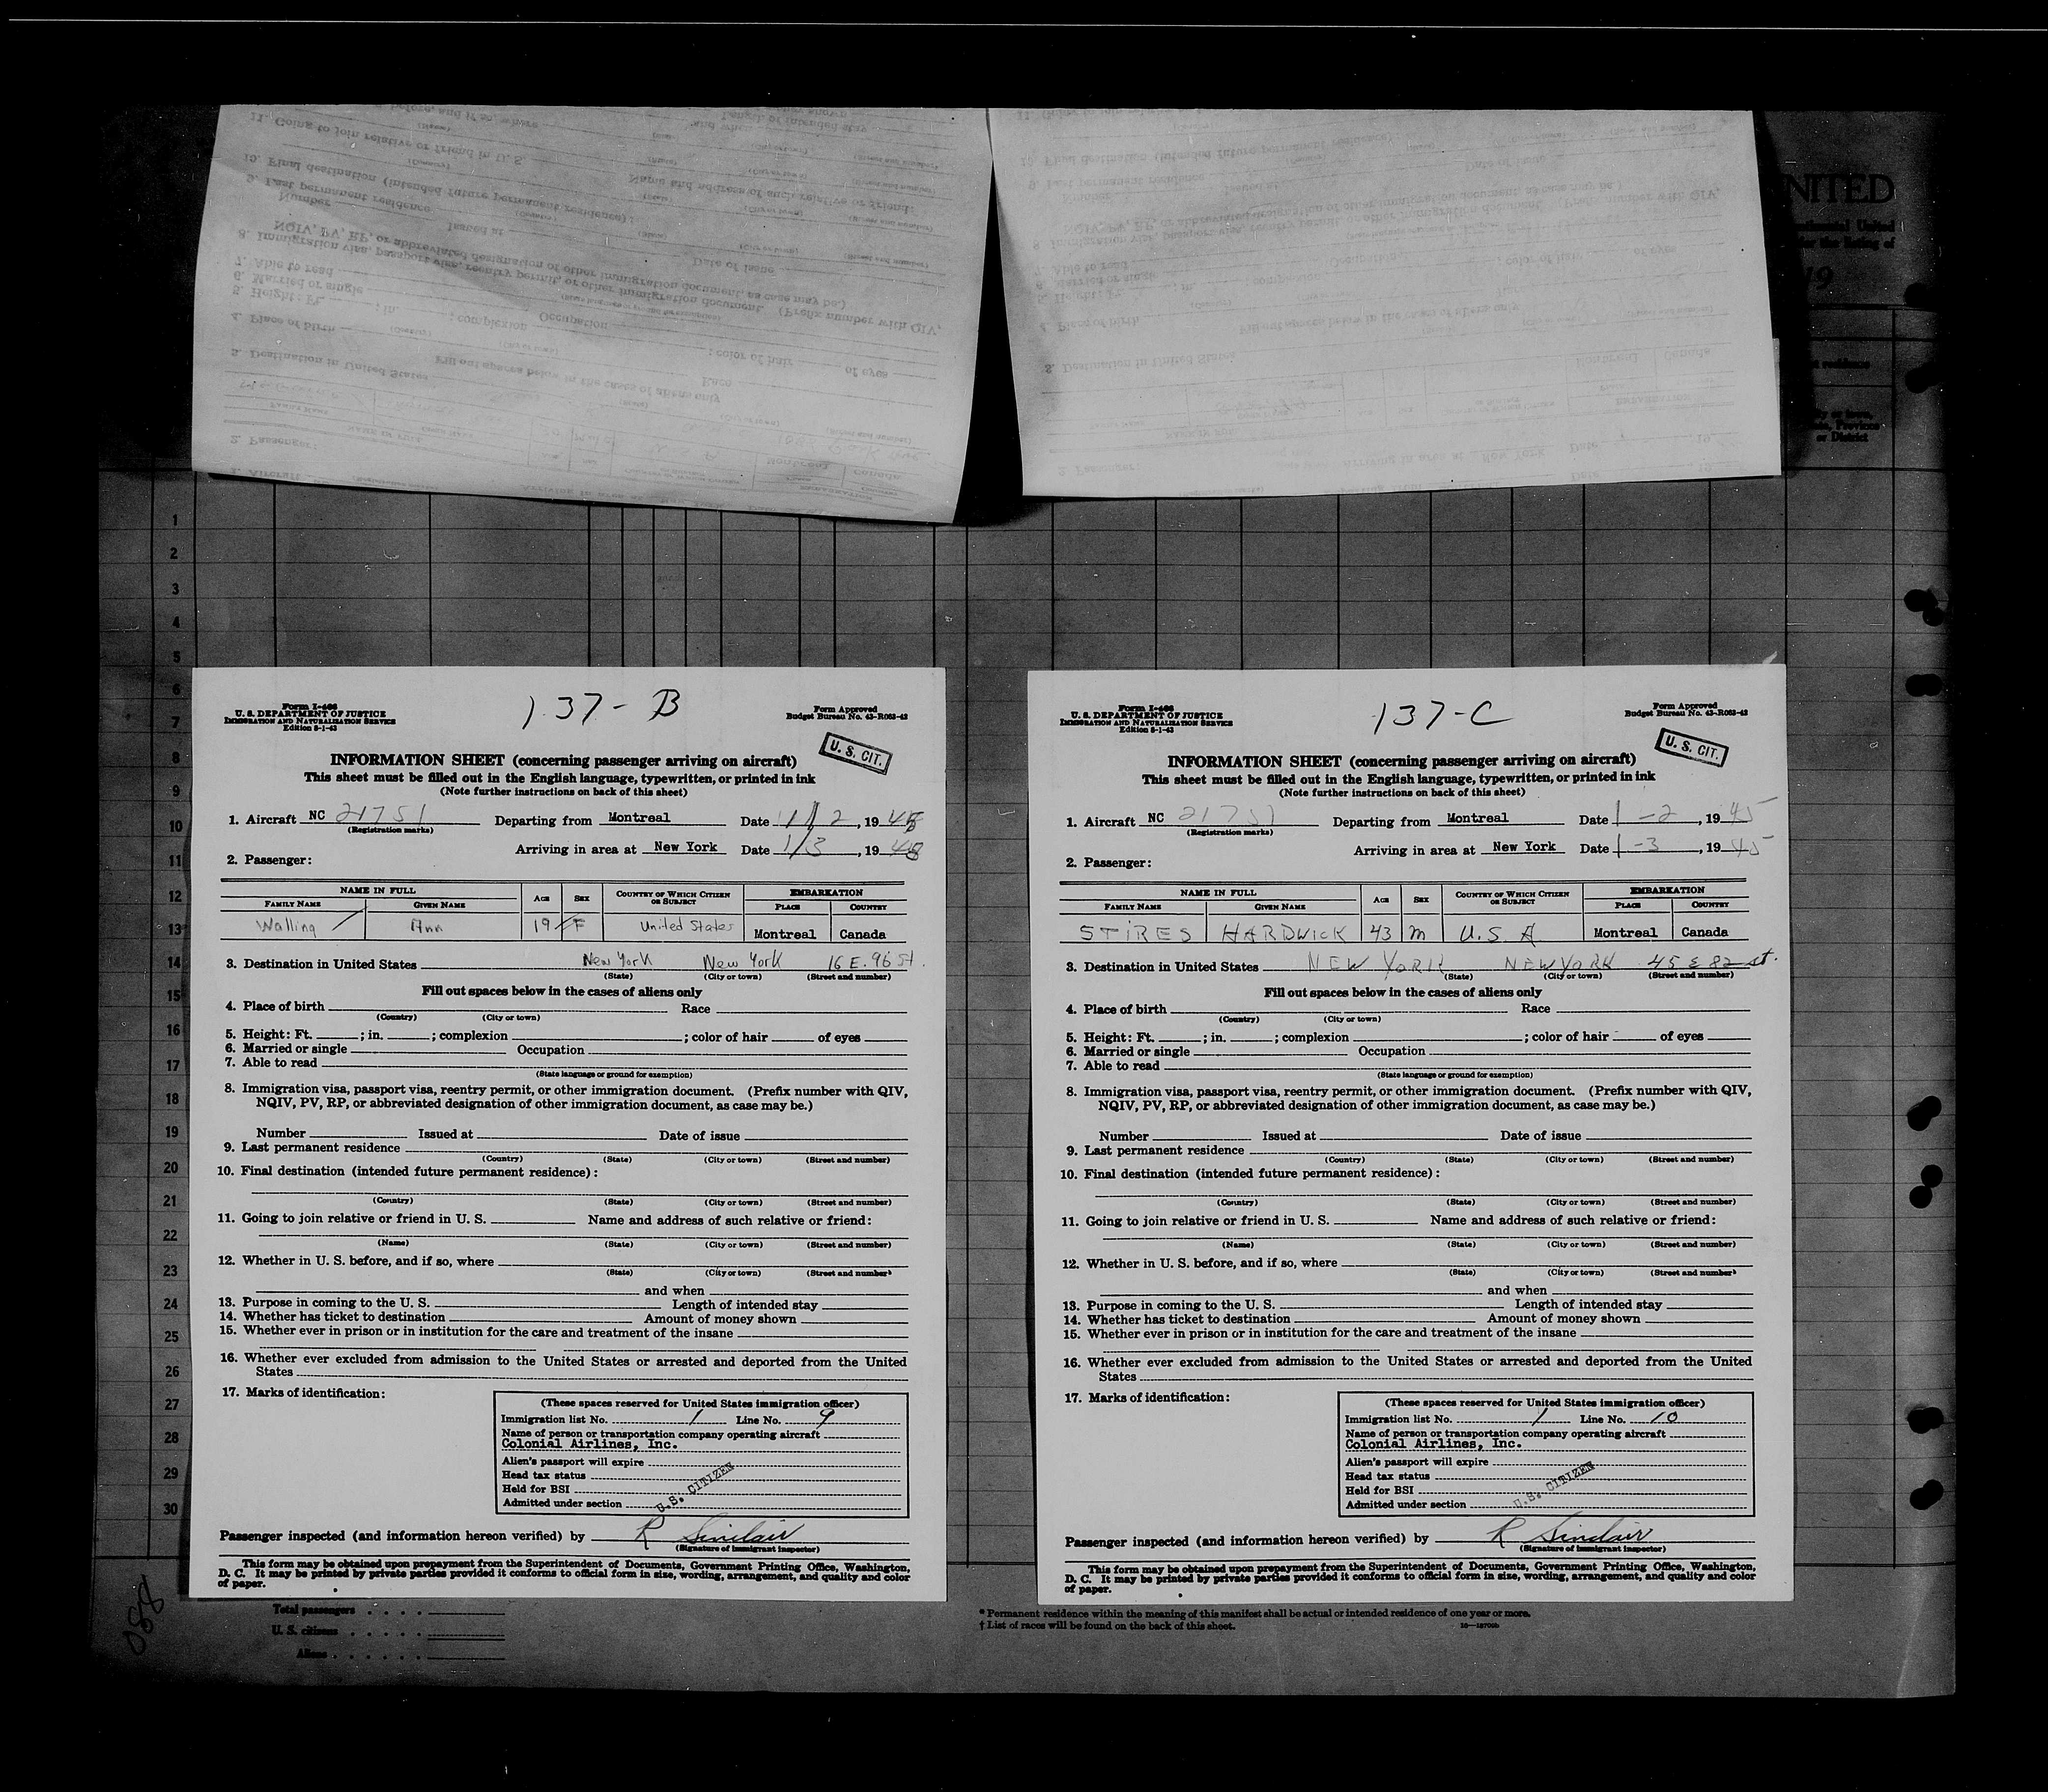 UNITED
19
residence
or District
1
2
3
4
5
6
7
8
9
10
11
12
13
14
15
16
17
18
19
20
21
22
23
24
25
26
27
28
29
30
137-B
U. S. DEPARTMENT OF JUSTICE
IMMIGRATION AND NATURALIZATION SERVICE
Edition 5-1-43
Form Approved
Budget Bureau No. 43-R063-42
U. S. CIT.
INFORMATION SHEET (concerning passenger arriving on aircraft)
This sheet must be filled out in the English language, typewritten, or printed in ink
(Note further instructions on back of this sheet)
1. Aircraft NC 21751 Departing from Montreal Date 1/2, 1945
(Registration marks)
Arriving in area at New York Date 1/3, 1945
2. Passenger:
NAME IN FULL AGE SEX COUNTRY OF WHICH CITIZEN OR SUBJECT EMBARKATION
FAMILY NAME GIVEN NAME PLACE COUNTRY
Walling Ann 19 F United States Montreal Canada
3. Destination in United States New York New York 16 E. 96 St.
(State) (City or town) (Street and number)
Fill out spaces below in the cases of aliens only
4. Place of birth Race
(Country) (City or town)
5. Height: Ft. ; in. ; complexion ; color of hair of eyes
6. Married or single Occupation
7. Able to read
(State language or ground for exemption)
8. Immigration visa, passport visa, reentry permit, or other immigration document. (Prefix number with QIV,
NQIV, PV, RP, or abbreviated designation of other immigration document, as case may be.)
Number Issued at Date of issue
9. Last permanent residence
(Country) (State) (City or town) (Street and number)
10. Final destination (intended future permanent residence):
(Country) (State) (City or town) (Street and number)
11. Going to join relative or friend in U. S. Name and address of such relative or friend:
(Name) (State) (City or town) (Street and number)
12. Whether in U. S. before, and if so, where
(State) (City or town) (Street and number)
and when
13. Purpose in coming to the U. S. Length of intended stay
14. Whether has ticket to destination Amount of money shown
15. Whether ever in prison or in institution for the care and treatment of the insane
16. Whether ever excluded from admission to the United States or arrested and deported from the United
States
17. Marks of identification:
(These spaces reserved for United States immigration officer)
Immigration list No. 1 Line No. 9
Name of person or transportation company operating aircraft
Colonial Airlines, Inc.
Alien's passport will expire
Head tax status
Held for BSI
Admitted under section
U.S. CITIZEN
Passenger inspected (and information hereon verified) by R Sinclair
(Signature of immigrant inspector)
This form may be obtained upon prepayment from the Superintendent of Documents, Government Printing Office, Washington,
D. C. It may be printed by private parties provided it conforms to official form in size, wording, arrangement, and quality and color
of paper.
137-C
U. S. DEPARTMENT OF JUSTICE
IMMIGRATION AND NATURALIZATION SERVICE
Edition 5-1-43
Form Approved
Budget Bureau No. 43-R063-42
U. S. CIT.
INFORMATION SHEET (concerning passenger arriving on aircraft)
This sheet must be filled out in the English language, typewritten, or printed in ink
(Note further instructions on back of this sheet)
1. Aircraft NC 21751 Departing from Montreal Date 1-2, 1945
(Registration marks)
Arriving in area at New York Date 1-3, 1945
2. Passenger:
NAME IN FULL AGE SEX COUNTRY OF WHICH CITIZEN OR SUBJECT EMBARKATION
FAMILY NAME GIVEN NAME PLACE COUNTRY
STIRES HARDWICK 43 M U.S.A Montreal Canada
3. Destination in United States NEW YORK NEW YORK 45 E 82 st.
(State) (City or town) (Street and number)
Fill out spaces below in the cases of aliens only
4. Place of birth Race
(Country) (City or town)
5. Height: Ft. ; in. ; complexion ; color of hair of eyes
6. Married or single Occupation
7. Able to read
(State language or ground for exemption)
8. Immigration visa, passport visa, reentry permit, or other immigration document. (Prefix number with QIV,
NQIV, PV, RP, or abbreviated designation of other immigration document, as case may be.)
Number Issued at Date of issue
9. Last permanent residence
(Country) (State) (City or town) (Street and number)
10. Final destination (intended future permanent residence):
(Country) (State) (City or town) (Street and number)
11. Going to join relative or friend in U. S. Name and address of such relative or friend:
(Name) (State) (City or town) (Street and number)
12. Whether in U. S. before, and if so, where
(State) (City or town) (Street and number)
and when
13. Purpose in coming to the U. S. Length of intended stay
14. Whether has ticket to destination Amount of money shown
15. Whether ever in prison or in institution for the care and treatment of the insane
16. Whether ever excluded from admission to the United States or arrested and deported from the United
States
17. Marks of identification:
(These spaces reserved for United States immigration officer)
Immigration list No. 1 Line No. 10
Name of person or transportation company operating aircraft
Colonial Airlines, Inc.
Alien's passport will expire
Head tax status
Held for BSI
Admitted under section
U.S. CITIZEN
Passenger inspected (and information hereon verified) by R Sinclair
(Signature of immigrant inspector)
This form may be obtained upon prepayment from the Superintendent of Documents, Government Printing Office, Washington,
D. C. It may be printed by private parties provided it conforms to official form in size, wording, arrangement, and quality and color
of paper.
Total passengers
U. S. citizens
Aliens
* Permanent residence within the meaning of this manifest shall be actual or intended residence of one year or more.
† List of races will be found on the back of this sheet.